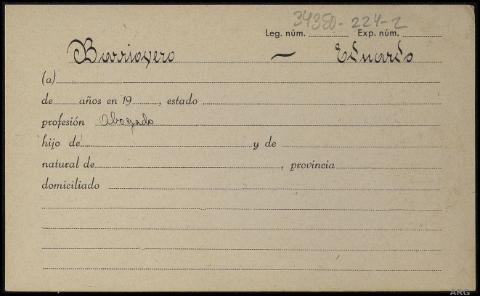 34380-224-2
Leg. núm. Exp. núm.
Barriovero — Eduardo
(a)
de años en 19, estado
profesión Abogado
hijo de y de
natural de, provincia
domiciliado
ARG